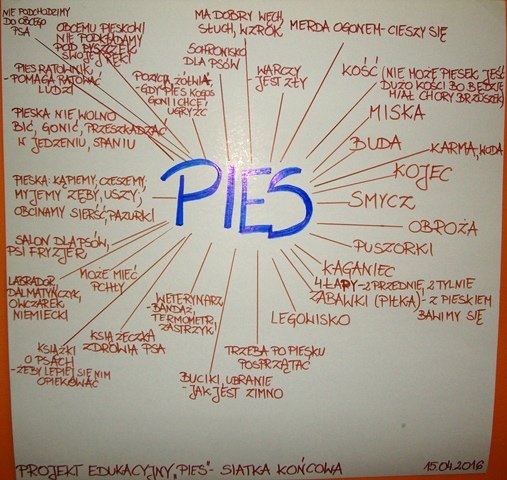 NIE PODCHODZIMY
DO OBCEGO
PSA
OBCEMU PIESKOWI
NIE PODKŁADAMY
POD PYSZCZEK
SWOJEJ RĘKI
MA DOBRY WĘCH,
SŁUCH, WZROK
MERDA OGONEM - CIESZY SIĘ
SCHRONISKO
DLA PSÓW
PIES RATOWNIK
- POMAGA RATOWAĆ
LUDZI
POZYCJA ŻÓŁWIA,
GDY PIES KOGOŚ
GONI I CHCE
UGRYŹĆ
- WARCZY
JEST ZŁY
KOŚĆ (NIE MOŻE PIESEK JEŚĆ
DUŻO KOŚCI BO BĘDZIE
MIAŁ CHORY BRZUSZEK)
MISKA
PIESKA NIE WOLNO
BIĆ, GONIĆ, PRZESZKADZAĆ
W JEDZENIU, SPANIU
BUDA
KARMA, WODA
KOJEC
PIES
PIESKA: KĄPIEMY, CZESZEMY,
MYJEMY ZĘBY, USZY,
OBCINAMY SIERŚĆ, PAZURKI
SMYCZ
OBROŻA
SALON DLA PSÓW,
PSI FRYZJER
PUSZORKI
KAGANIEC
LABRADOR,
DALMATYŃCZYK,
OWCZAREK
NIEMIECKI
MOŻE MIEĆ
PCHŁY
4 ŁAPY - 2 PRZEDNIE, 2 TYLNIE
ZABAWKI (PIŁKA) - Z PIESKIEM
BAWIMY SIĘ
WETERYNARZ
- BANDAŻ,
TERMOMETR,
ZASTRZYKI
LEGOWISKO
KSIĄŻECZKA
ZDROWIA PSA
KSIĄŻKI
O PSACH
- ŻEBY LEPIEJ SIĘ NIM
OPIEKOWAĆ
TRZEBA PO PIESKU
POSPRZĄTAĆ
BUCIKI, UBRANIE
- JAK JEST ZIMNO
PROJEKT EDUKACYJNY "PIES" - SIATKA KOŃCOWA
15.04.2016